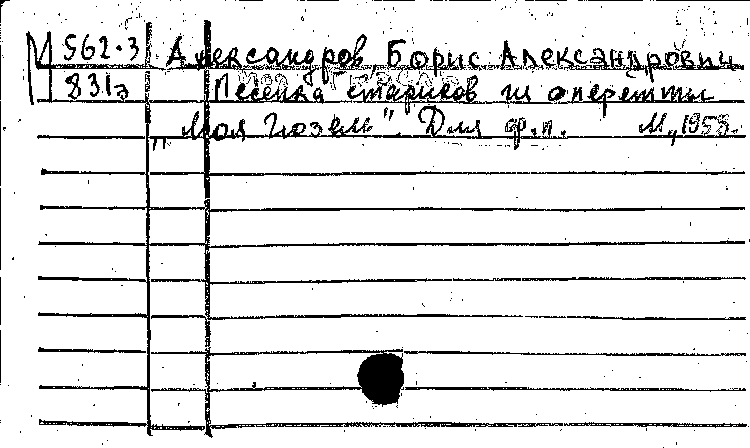 М 562-3 Александров, Борис Александрович
831э Песенка стариков из оперетты
„Моя Гюзель". Для ф.п. М., 1958.